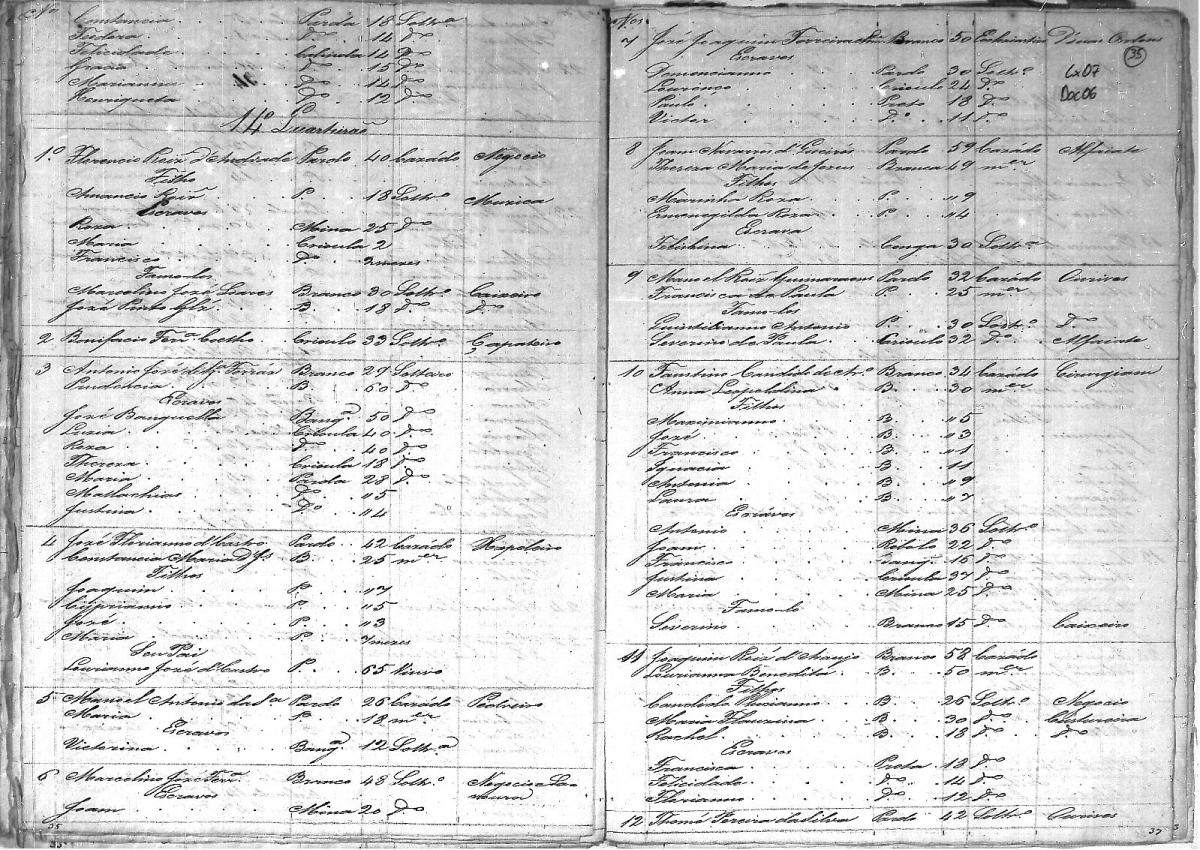 Nos
Constancia Parda 18 Solta
Izidora Do 14 Do
Felicidade Crioula 14 Do
Gracia Do 15 Do
Marianna Do 14 Do
Henriqueta Do 12 Do
14o Quarteirão
1o Florencio Roiz d'Andrade Pardo 40 Cazado Negocio
Filho
Amancio Roiz P. 18 Solto Muzica
Escravos
Roza Mina 25 Do
Maria Crioula 2
Francisco Do 2 mezes
Famolos
Marcolino José Soares Branco 30 Solto Caixeiro
José Pinto Glz B 18 Do Do
2 Bonifacio Fera Coelho Crioulo 33 Solto Çapateiro
3 Antonio José d' Ferras Branco 27 Solteiro
Prudencia B 60 Do
Escravos
José Banguella Bang. 50 Do
Luzia Crioula 40 Do
Roza Do 40 Do
Thereza Crioula 18 Do
Maria Parda 28 Do
Mallachias Do "5
Justina Do "4
4 José Florianno d'Castro Pardo 42 Cazado
Constancia Maria B. 25 mer
Filhos
Joaquim P. "7
Ciprianno P. "5
José P. "3
Maria P 7 mezes
Seu Pai
Lourianno José d'Castro P. 65 Viuvo
5 Manoel Antonio da Sa Pardo 26 Cazado Pedreiro
Maria P 18 mer
Escravos
Victorina Bang. 12 Solta
6 Marcolino José Fera Branco 48 Solto Negocio
Escravos
Joam Mina 20 Do
35
Nos
7 José Joaquim Branco 50 D'suas Ordens
Escravos
Pardo 30 Solto
Lourenço Crioulo 24 Do
Paulo Preto 18 Do
Victor Do 11 Do
35
Cx07
Doc06
8 Joam Pardo 59 Cazado Alfaiate
Thereza Maria de Jesus Branca 49 mer
Filhos
Marinha Roza P. "9
Ermenegilda Roza P. "4
Escrava
Felishina Conga 30 Solta
9 Manoel Roiz Guimaraens Pardo 32 Cazado Ourives
Francisca da Paula P. 25 mer
Famolos
Quintilianno Antonio P. 30 Solto Do
Severino da Paula Crioulo 32 Do Alfaiate
10 Faustino Candido de Branco 34 Cazado Cirurgiam
Anna Leopoldina B. 30 mer
Filhos
Maximianno B. "5
José B. "3
Francisco B. "1
Ignacia B. 11
Antonia B. "9
Laura B. "7
Escravos
Antonio Mina 36 Solto
Joam Rebolo 22 Do
Francisco Bang. 15 Do
Justina Crioula 37 Do
Maria Mina 25 Do
Famolo
Severino Branco 15 Do Caixeiro
11 Joaquim Roiz d'Araujo Branco 58 Cazado
Lourianna Benedita B. 50 mer
Filhos
Candido B. 26 Solto Negocio
Maria B. 30 Do Custureira
Rachel B. 18 Do Do
Escravos
Francisca Preta 18 Do
Felicidade Do 14 Do
Florianno Do 12 Do
12 Thomé Pereira da Silva Pardo 42 Solto Ourives
37